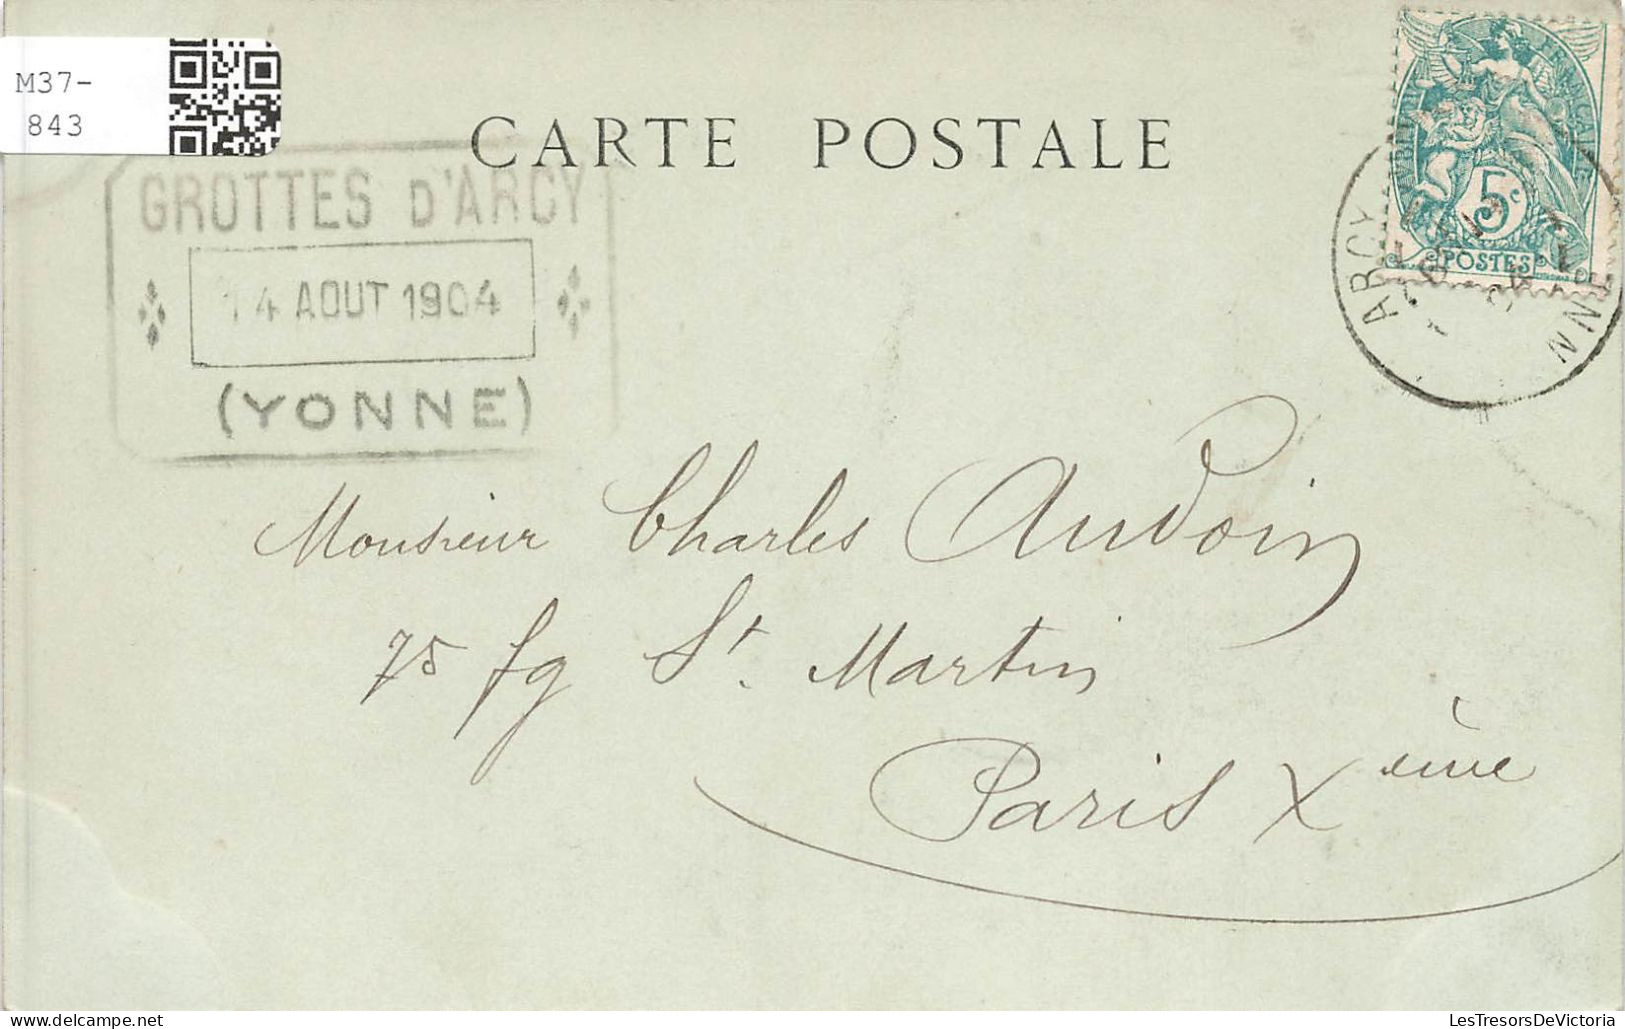 M37-
843
CARTE POSTALE
GROTTES D'ARCY
14 AOUT 1904
(YONNE)
FRANÇAISE
5c
POSTES
ARCY
YONNE
Monsieur Charles Audoin
75 fg St. Martin
Paris Xème
LesTresorsDeVictoria